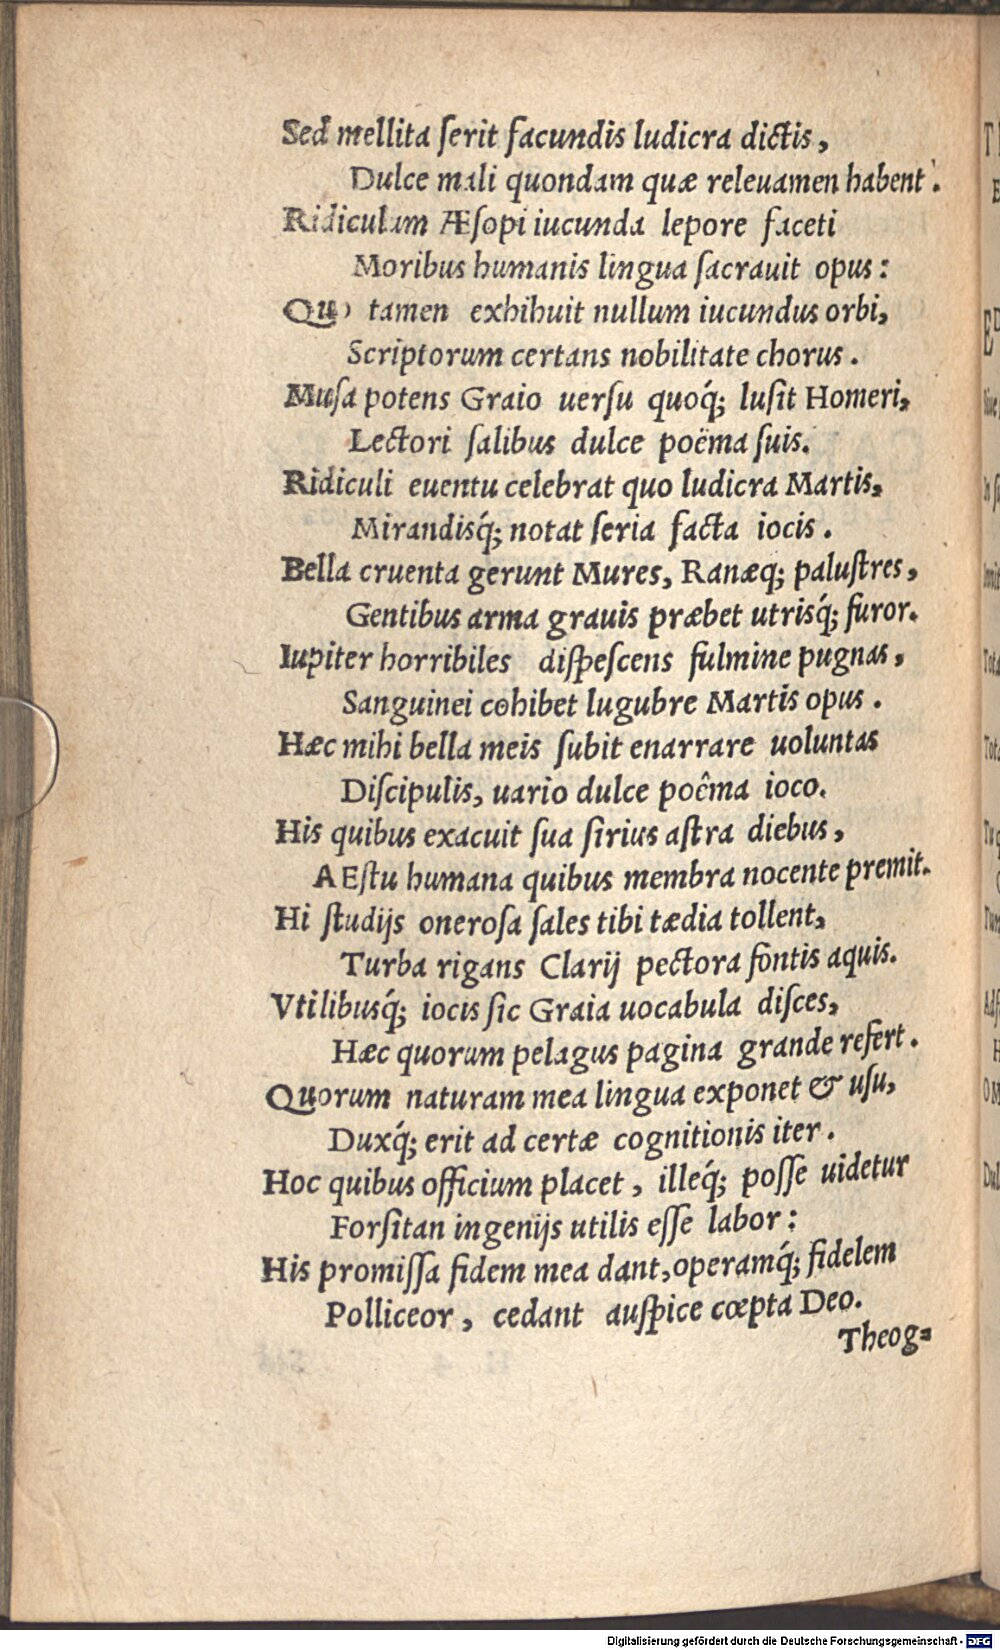 Sed mellita ſerit facundis ludicra dictis,
Dulce mali quondam quæ releuamen habent.
Ridiculum Æſopi iucunda lepore faceti
Moribus humanis lingua ſacrauit opus:
Quo tamen exhibuit nullum iucundus orbi,
Scriptorum certans nobilitate chorus.
Muſa potens Graio uerſu quoq́; luſit Homeri,
Lectori ſalibus dulce poëma ſuis.
Ridiculi euentu celebrat quo ludicra Martis,
Mirandisq́; notat ſeria facta iocis.
Bella cruenta gerunt Mures, Ranæq; paluſtres,
Gentibus arma grauis præbet utrisq́; furor.
Iupiter horribiles diſpeſcens fulmine pugnas,
Sanguinei cohibet lugubre Martis opus.
Hæc mihi bella meis ſubit enarrare uoluntas
Diſcipulis, uario dulce poêma ioco.
His quibus exacuit ſua ſirius aſtra diebus,
AEſtu humana quibus membra nocente premit.
Hi ſtudijs oneroſa ſales tibi tædia tollent,
Turba rigans Clarij pectora fontis aquis.
Vtilibusq́; iocis ſic Graia uocabula diſces,
Hæc quorum pelagus pagina grande refert.
Quorum naturam mea lingua exponet & uſu,
Duxq́; erit ad certæ cognitionis iter.
Hoc quibus officium placet, illeq́; poſſe uidetur
Forſitan ingenijs utilis eſſe labor:
His promiſſa fidem mea dant, operamq́; fidelem
Polliceor, cedant auſpice cœpta Deo.
Theog-
Digitalisierung gefördert durch die Deutsche Forschungsgemeinschaft - DFG